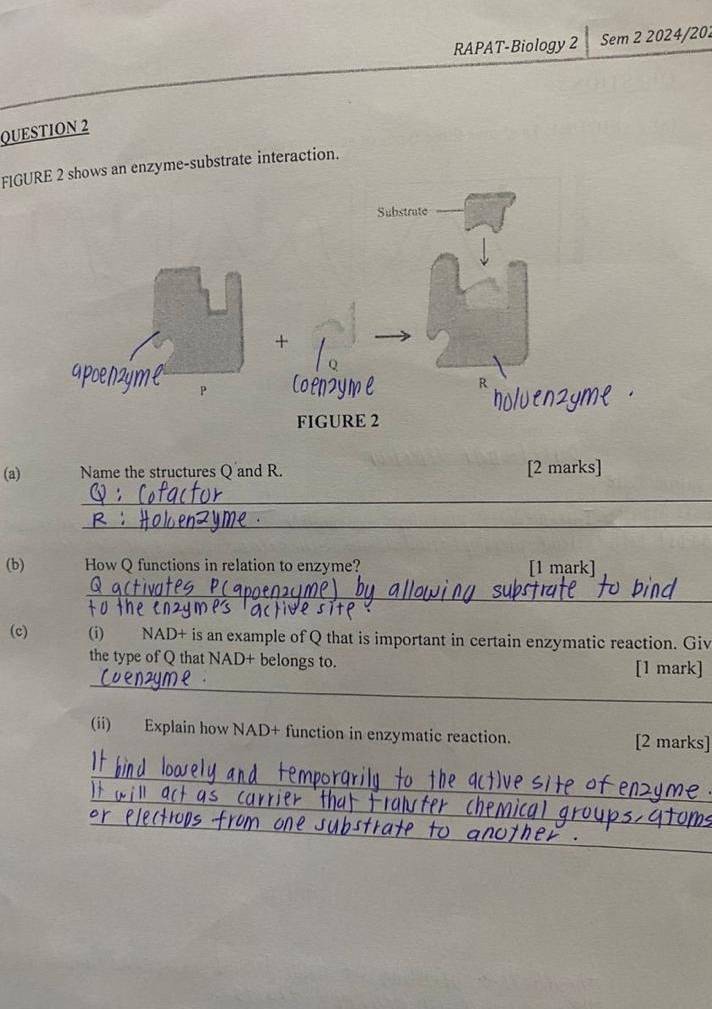 RAPAT-Biology 2 | Sem 2 2024/202
QUESTION 2
FIGURE 2 shows an enzyme-substrate interaction.
Substrate
+
apoenzyme
P
Q
coenzyme
R
holoenzyme.
FIGURE 2
(a) Name the structures Q and R. [2 marks]
Q : Cofactor
R : Holoenzyme.
(b) How Q functions in relation to enzyme? [1 mark]
Q activates P(apoenzyme) by allowing substrate to bind
to the enzyme's active site.
(c) (i) NAD+ is an example of Q that is important in certain enzymatic reaction. Giv
the type of Q that NAD+ belongs to. [1 mark]
Coenzyme.
(ii) Explain how NAD+ function in enzymatic reaction. [2 marks]
It bind loosely and temporarily to the active site of enzyme.
It will act as carrier that transfer chemical groups, atoms
or electrons from one substrate to another.